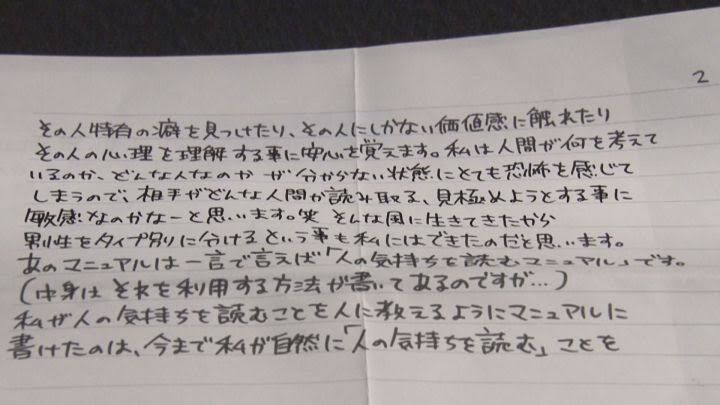 2
その人特有の癖を見つけたり、その人にしかない価値感に触れたり
その人の心理を理解する事に安心を覚えます。私は人間が何を考えて
いるのか、どんな人なのかが分からない状態にとても恐怖を感じて
しまうので、相手がどんな人間か読み取る、見極めようとする事に
敏感なのかなーと思います。笑 そんな風に生きてきたから
男性をタイプ別に分けるという事も私にはできたのだと思います。
あのマニュアルは一言で言えば「人の気持ちを読むマニュアル」です。
(中身はそれを利用する方法が書いてあるのですが…)
私が人の気持ちを読むことを人に教えるようにマニュアルに
書けたのは、今まで私が自然に「人の気持ちを読む」ことを